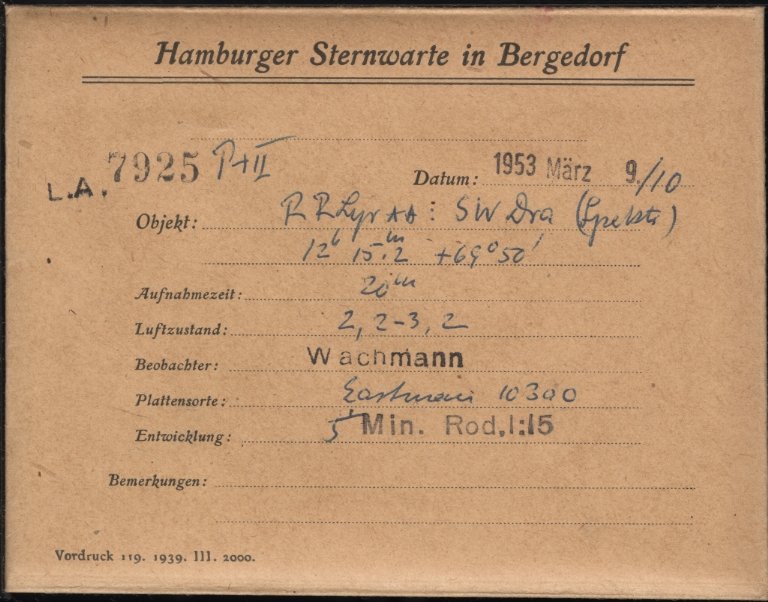 Hamburger Sternwarte in Bergedorf
L.A. 7925 P+II
Datum: 1953 März 9./10
Objekt: RRLyr ** : SW Dra (Spektr)
12h 15.m2 +69°50'
Aufnahmezeit: 20m
Luftzustand: 2, 2-3, 2
Beobachter: Wachmann
Plattensorte: Eastman 10300
Entwicklung: 5 Min. Rod, 1:15
Bemerkungen:
Vordruck 119. 1939. III. 2000.